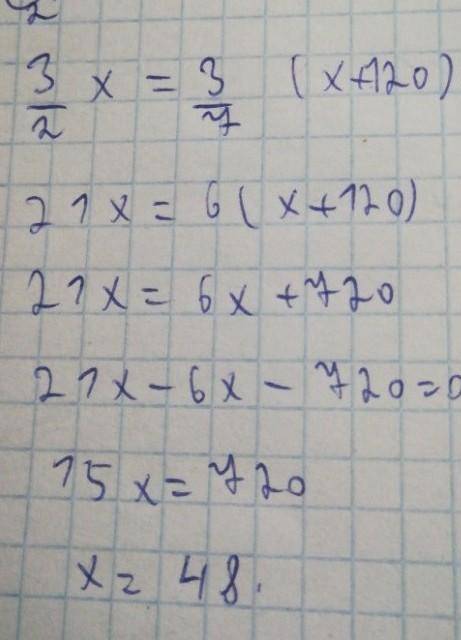 2
3/2 x = 3/7 (x+120)
21x = 6(x+120)
21x = 6x+720
21x-6x-720=0
15x=720
x=48.